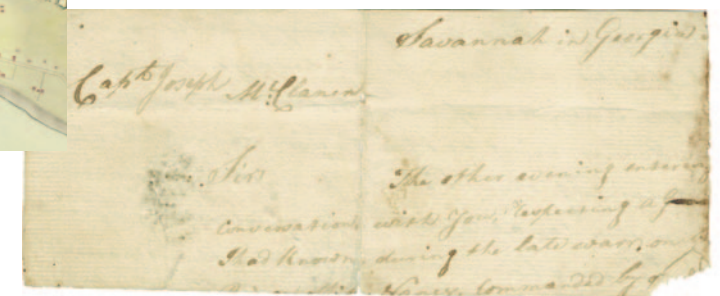 Savannah in Georgia
Capt Joseph McClanen
Sir
The other evening entering
conversation with You, respecting a
I had Known during the late warr, on
commanded by